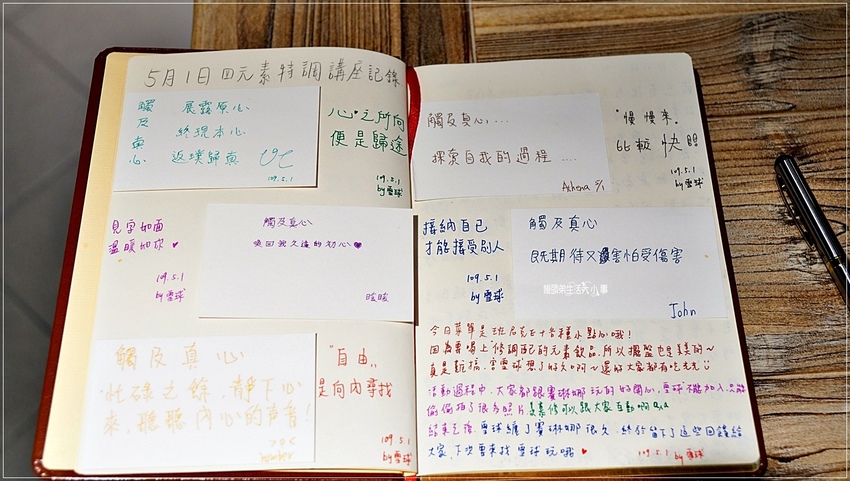 5月1日四元素特調講座記錄
觸及真心
展露原心
終現本心
返璞歸真
109.5.1
心之所向
便是歸途
109.5.1
by雪球
見字如面
溫暖如妳
109.5.1
by雪球
觸及真心
喚回我久違的初心
睃睃
觸及真心
忙碌之餘,靜下心
來,聽聽內心的聲音!
"自由"
是向內尋找
109.5.1
by雪球
觸及真心...
探索自我的過程....
Athena 5/1
"慢慢來"
比較快
109.5.1
by雪球
接納自己
才能接受別人
109.5.1
by雪球
觸及真心
既期待又害怕受傷害
John
饅頭弟生活大小事
今日菜單是班尼克五十多種小點心哦!
因為要喝上修調配的元素飲品,所以擺盤也是美美的~
真是虧損,害雪球想了好久啊~還好大家都有吃光光
活動過程中,大家都跟賽琳娜玩的好開心,雪球不能加入,只能
偷偷拍了很多照片,真希望可以跟大家互動啊QAQ
結束之後,雪球纏了賽琳娜很久,終於留下了這些回饋給
大家,下次要來找雪球玩哦
109.5.1 by雪球